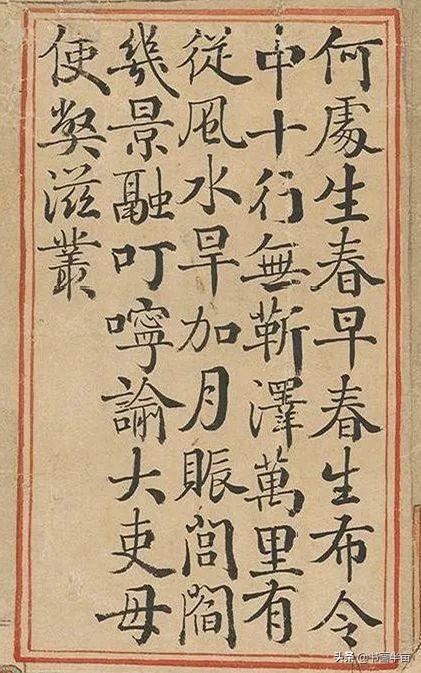 何處生春早春生布令
中十行無靳澤萬里有
從風水旱加月賑閭閻
幾景融叮嚀諭大吏毋
使弊滋叢
头条 @书画半亩